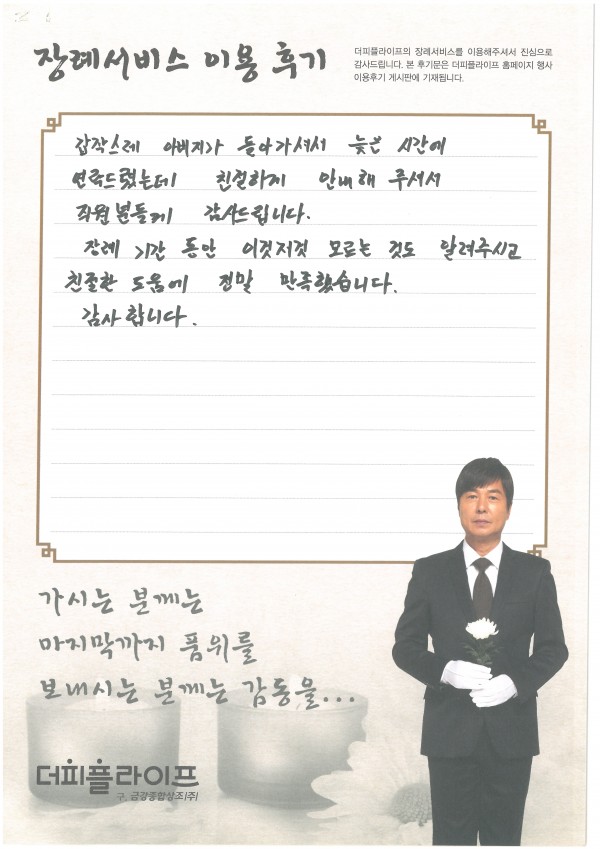 장례서비스 이용 후기
더피플라이프의 장례서비스를 이용해주셔서 진심으로
감사드립니다. 본 후기문은 더피플라이프 홈페이지 행사
이용후기 게시판에 기재됩니다.
갑작스레 아버지가 돌아가셔서 늦은 시간에
연락드렸는데 친절하게 안내해 주셔서
직원분들께 감사드립니다.
장례 기간 동안 이것저것 모르는 것도 알려주시고
친절한 도움에 정말 만족했습니다.
감사합니다.
가시는 분께는
마지막까지 품위를
보내시는 분께는 감동을...
더피플라이프
구. 금강종합상조(주)